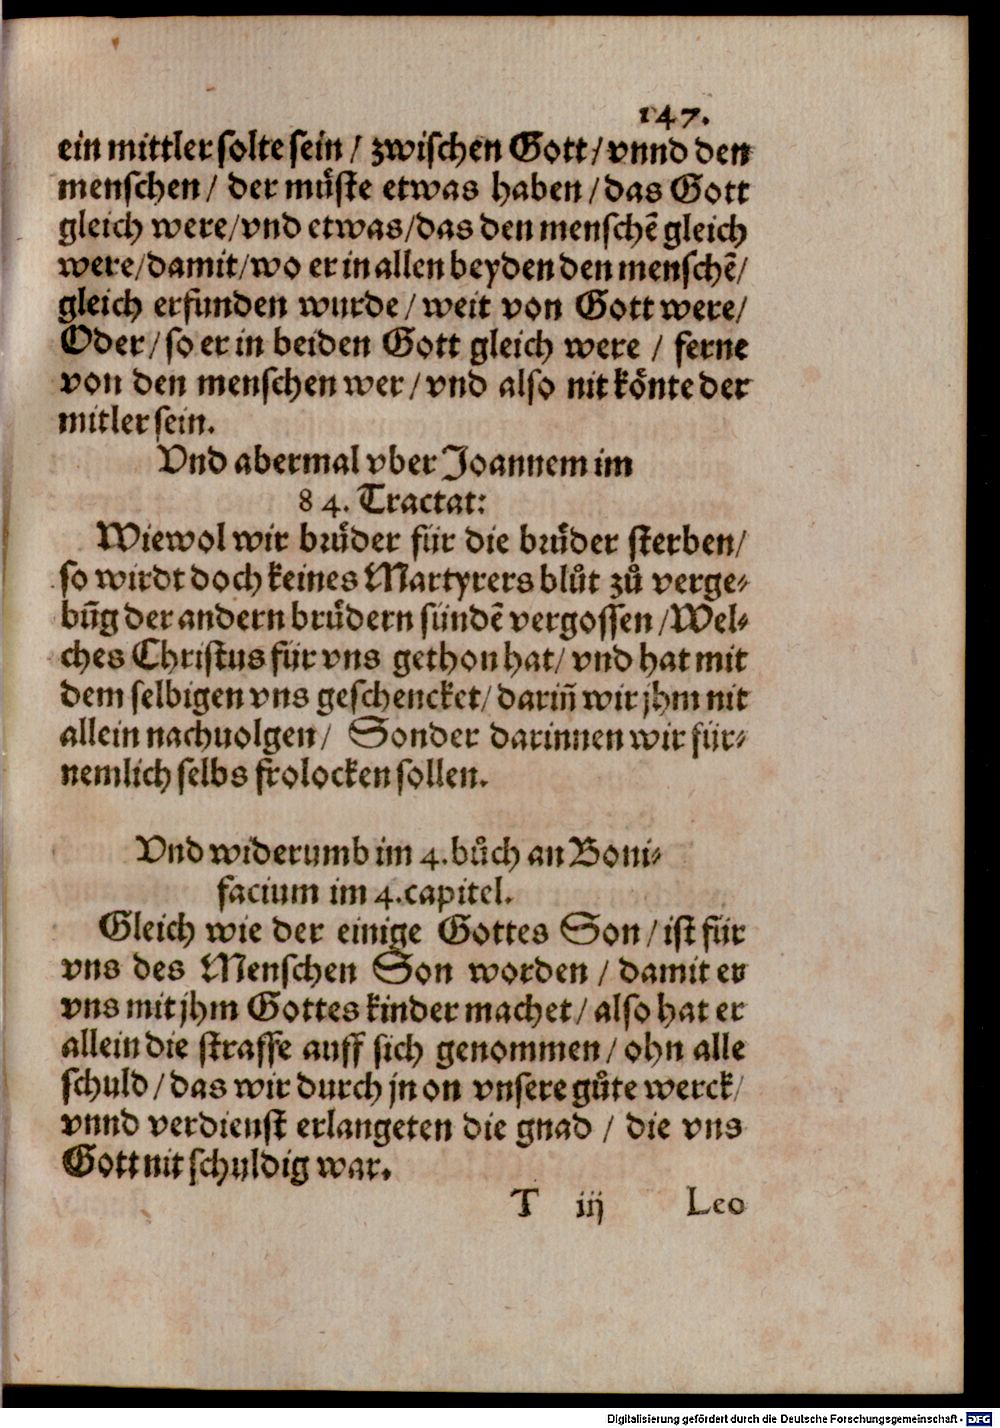 147.
ein mittler solte sein / zwischen Gott / vnnd den
menschen / der müste etwas haben / das Gott
gleich were / vnd etwas / das den menschē gleich
were / damit / wo er in allen beyden den menschē /
gleich erfunden wurde / weit von Gott were /
Oder / so er in beiden Gott gleich were / ferne
von den menschen wer / vnd also nit könte der
mitler sein.
Vnd abermal vber Joannem im
84. Tractat:
Wiewol wir brůder für die brůder sterben /
so wirdt doch keines Martyrers blůt zů verge-
būg der andern brůdern sündē vergossen / Wel-
ches Christus für vns gethon hat / vnd hat mit
dem selbigen vns geschencket / dariñ wir jhm nit
allein nachuolgen / Sonder darinnen wir für-
nemlich selbs frolocken sollen.
Vnd widerumb im 4. bůch an Boni-
facium im 4. capitel.
Gleich wie der einige Gottes Son / ist für
vns des Menschen Son worden / damit er
vns mit jhm Gottes kinder machet / also hat er
allein die straffe auff sich genommen / ohn alle
schuld / das wir durch jn on vnsere gůte werck /
vnnd verdienst erlangeten die gnad / die vns
Gott nit schuldig war.
T iij Leo
Digitalisierung gefördert durch die Deutsche Forschungsgemeinschaft - DFG